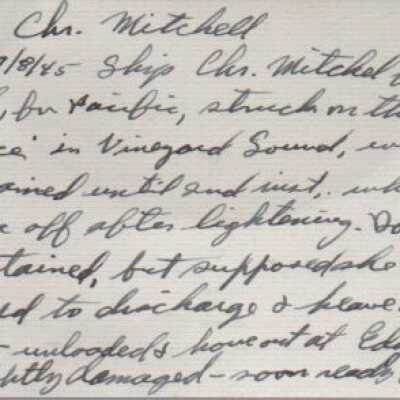 Chr. Mitchell
/8/45 Ship Chr. Mitchel
for Pacific, struck on th
ce' in Vineyard Sound, w
ained until 2nd inst., wh
off after lightening.
tained, but supposed she
to discharge & heave
- unloaded & hove out at Ed
htly damaged - soon ready